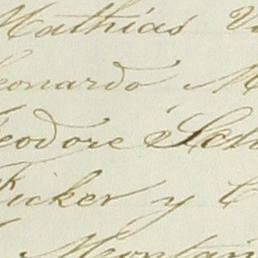 Mathias V
eonardo M
eodore Sch
Ficker y C
Montan